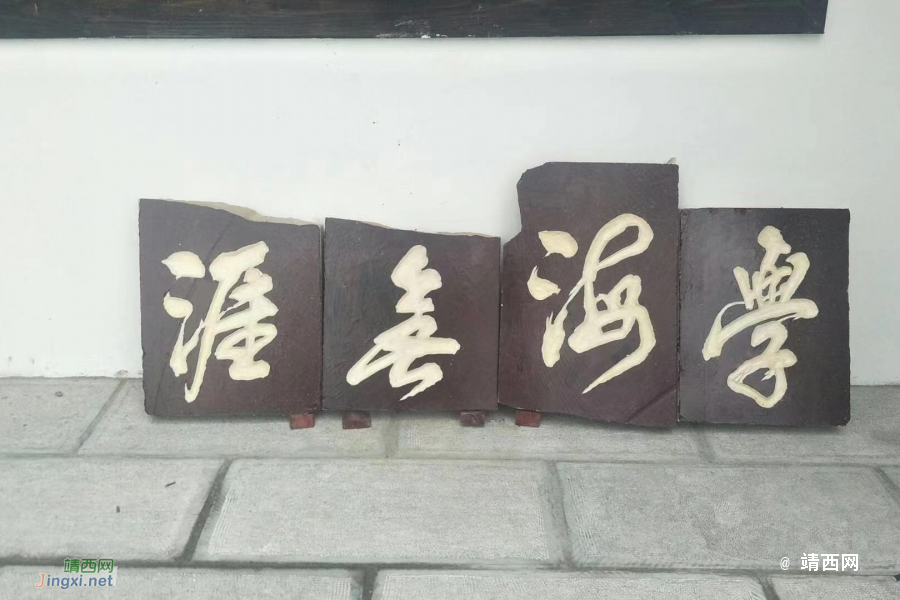 學海無涯
靖西网
Jingxi.net
@ 靖西网